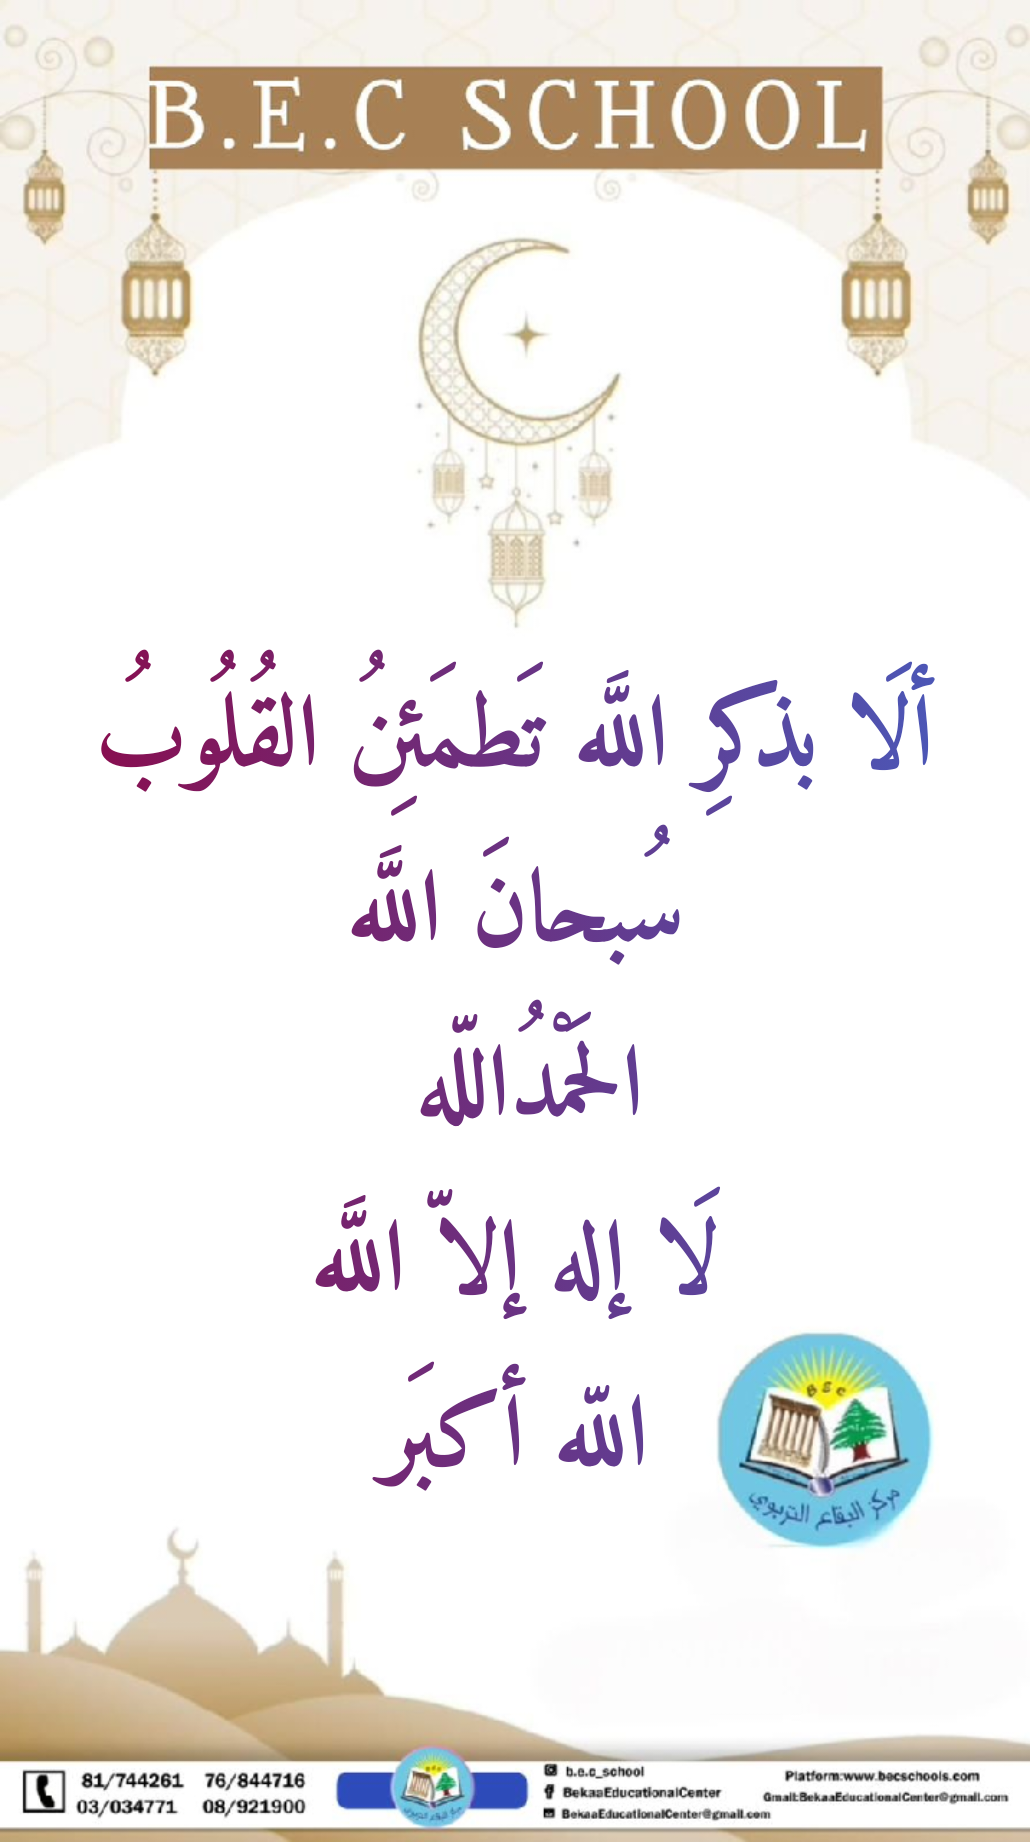 B.E.C SCHOOL
أَلَا بذكرِ اللَّه تَطمَئِنُ القُلُوبُ
سُبحانَ اللَّه
الحَمْدُاللّه
لَا إله إلاّ اللَّه
اللّه أكبَر
B E C
مركز البقاع التربوي
81/744261 76/844716
03/034771 08/921900
b.e.c_school
BekaaEducationalCenter
BekaaEducationalCenter@gmail.com
Platform:www.becschools.com
Gmail:BekaaEducationalCenter@gmail.com